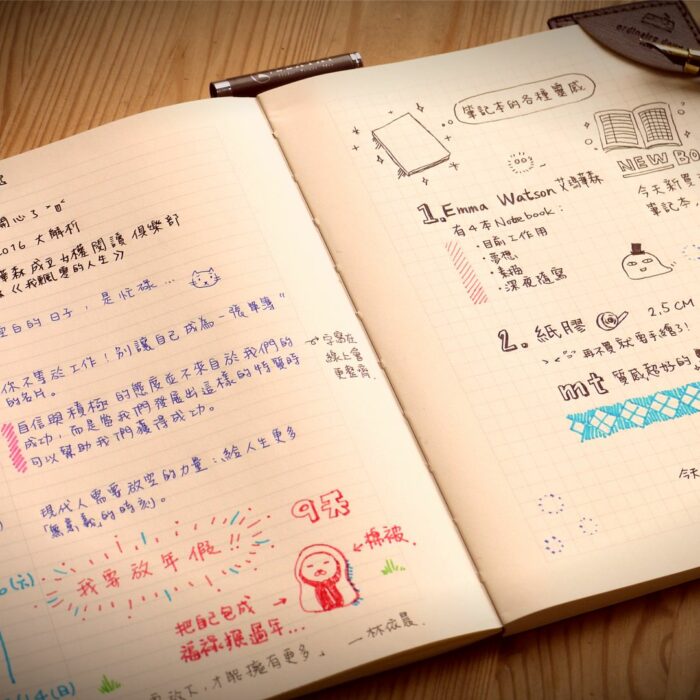 開心了
2016 大解析
成立女權閱讀俱樂部
《我飄零的人生》
空白的日子，是忙碌…
你不等於工作！別讓自己成為一張單薄
的名片。
自信與積極的態度並不來自於我們的
成功，而是當我們發展出這樣的特質時
可以幫助我們獲得成功。
字寫在
線上會
更整齊
現代人需要放空的力量：給人生更多
「無意義」的時刻。
我要放年假!!
9天
棉被
把自己包成
福祿猴過年…
(六)
14(日)
放下，才能擁有更多。
筆記本的各種靈感
NEW BO
今天新買
筆記本，
1. Emma Watson 艾瑪華森
有4本Notebook：
・目前工作用
・夢想
・素描
・深夜隨寫
2. 紙膠 2.5CM
再不買就要手繪了！
mt 質感超好的
今天